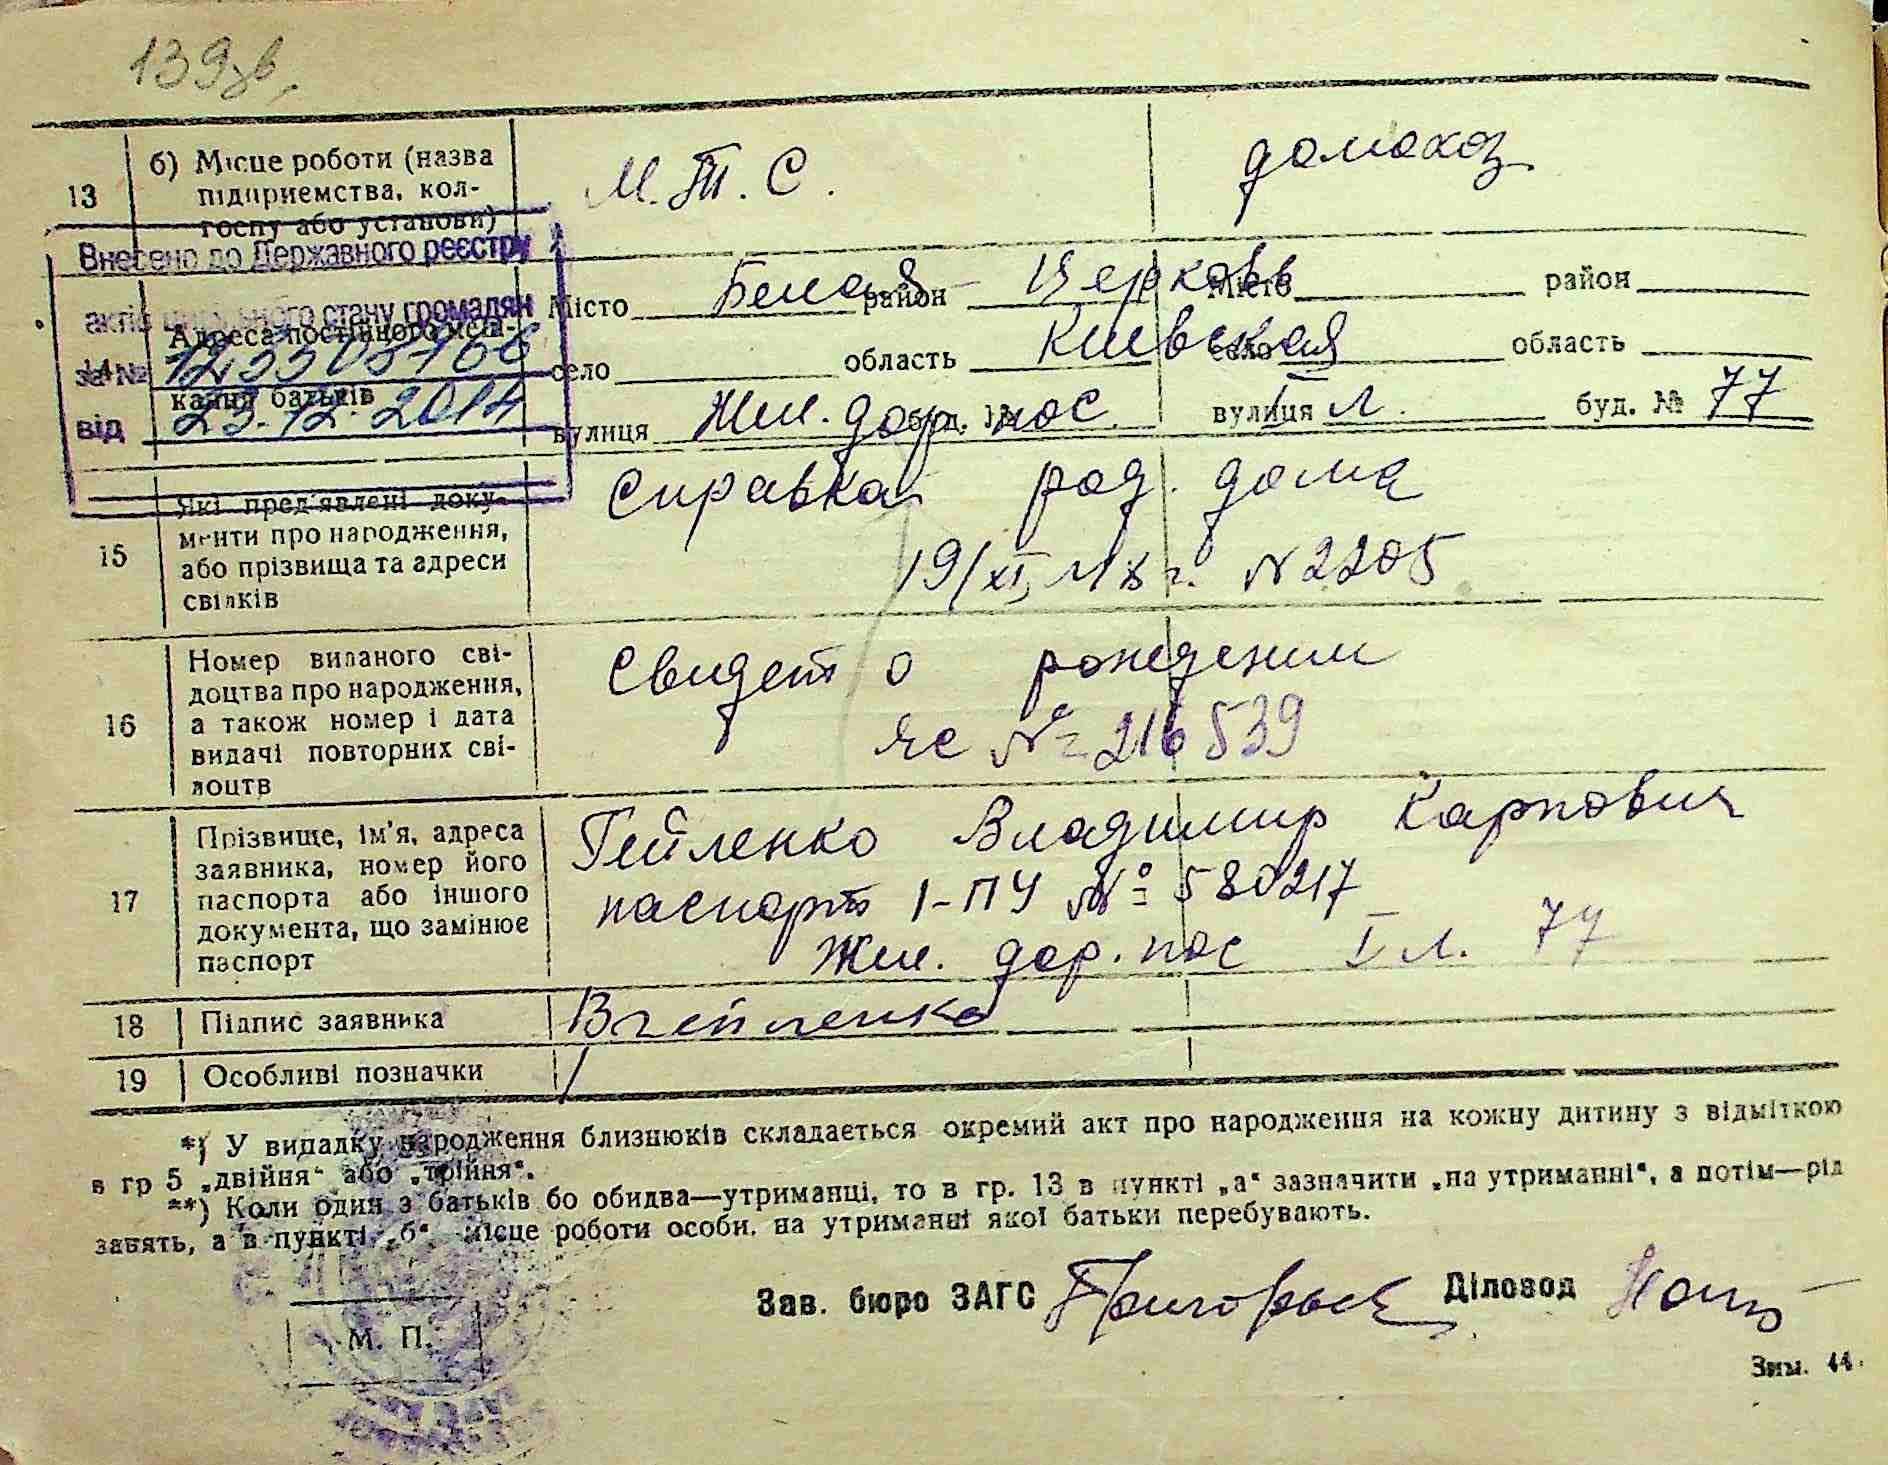 139зв.
13
б) Місце роботи (назва
підприємства, кол-
госпу або установи)
М.Т.С.
домохоз
Внесено до Державного реєстру
актів цивільного стану громадян
за №
від 23.12.2014
14
Адреса постійного меш-
кання батьків
Місто Белая район Церковь Місто район
село область Киевская село область
вулиця Жел. дор. пос. вулиця I л. буд. № 77
15
Які пред'явлені доку-
менти про народження,
або прізвища та адреси
свідків
Справка род. дома
19/XI г. N 2205
16
Номер виданого сві-
доцтва про народження,
а також номер і дата
видачі повторних сві-
доцтв
Свидет о рождении
ЯС № 216539
17
Прізвище, ім'я, адреса
заявника, номер його
паспорта або іншого
документа, що замінює
паспорт
Гейленко Владимир Карпович
паспорт I-ПУ № 580217
Жел. дор. пос I л. 77
18
Підпис заявника
Вгейленко
19
Особливі позначки
*) У випадку народження близнюків складається окремий акт про народження на кожну дитину з відміткою
в гр 5 „двійня“ або „трійня“.
**) Коли один з батьків бо обидва—утриманці, то в гр. 13 в пункті „а“ зазначити „на утриманні“, а потім—рід
занять, а в пункті „б“ місце роботи особи, на утриманні якої батьки перебувають.
Зав. бюро ЗАГС
Діловод
М. П.
Зим. 44